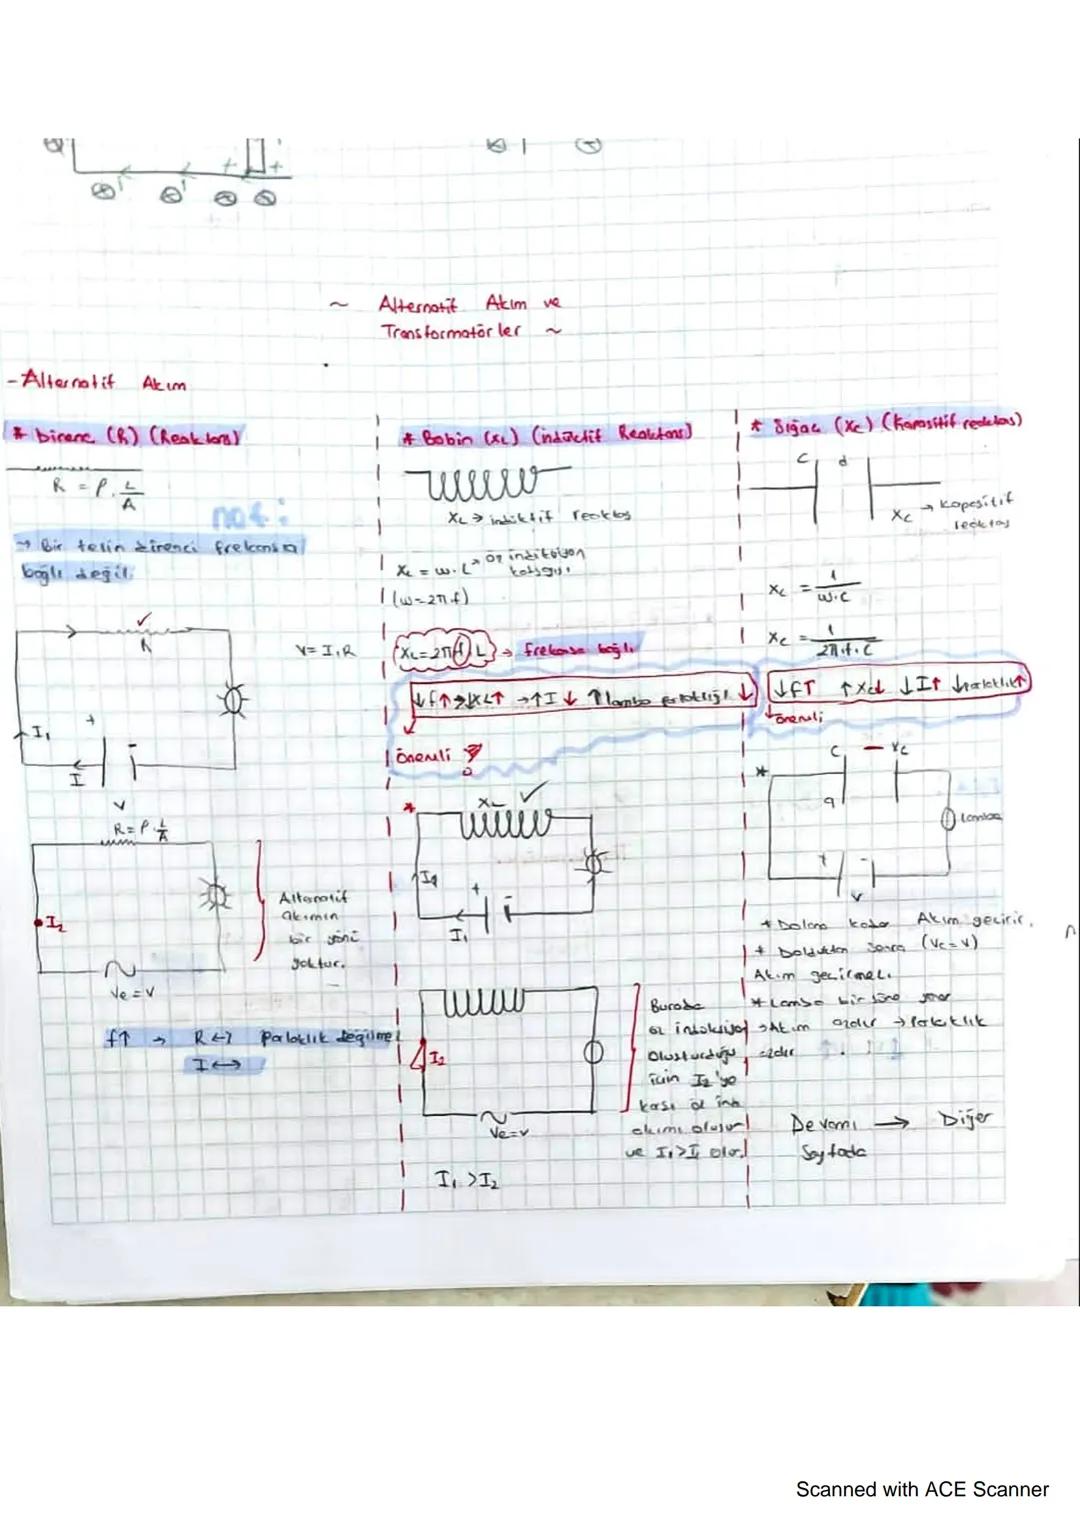 ~ Alternatif Akım ve
Transformatörler ~
- Alternatif Akım
* Direnç (R) (Reaktans)
R = ρ . L/A
not:
→ Bir telin direnci frekansa
bağlı değil.
R
V = I.R
I₁
+ -
I
V
R = ρ . L/A
I₂
Ve = V
Alternatif
akımın
bir yönü
yoktur.
f↑ → R ↔ Parlaklık değişmez
I ↔
* Bobin (XL) (İndüktif Reaktans)
XL → indüktif reaktas
XL = w.L → Öz indiksiyon
katsayısı
(w = 2π.f)
XL = 2π f L → frekansa bağlı
↓f↑ → XL↑ → ↑I↓ ↑ lamba parlaklığı ↓
önemli
* XL
I₁
+ -
I₁
I₂
Ve = V
Burada
öz indüksiyon
oluşturduğu
için I₂'ye
karşı öz ind
akımı oluşur
ve I₁ > I₂ olur.
I₁ > I₂
* Sığaç (Xc) (Kapasitif reaktas)
C d
Xc → Kapasitif
reaktas
Xc = 1/w.C
Xc = 1/2π.f.C
↓f↑ ↑Xc↓ ↓I↑ ↓parlaklık↑
önemli
* C - Vc
q
Lamba
+ -
V
* Dolana kadar Akım geçirir.
* Dolduktan sonra (Vc = V)
Akım geçirmez.
* Lamba bir süre yanar
→ Akım azalır → Parlaklık
azalır
Devamı → Diğer
Sayfada
Scanned with ACE Scanner